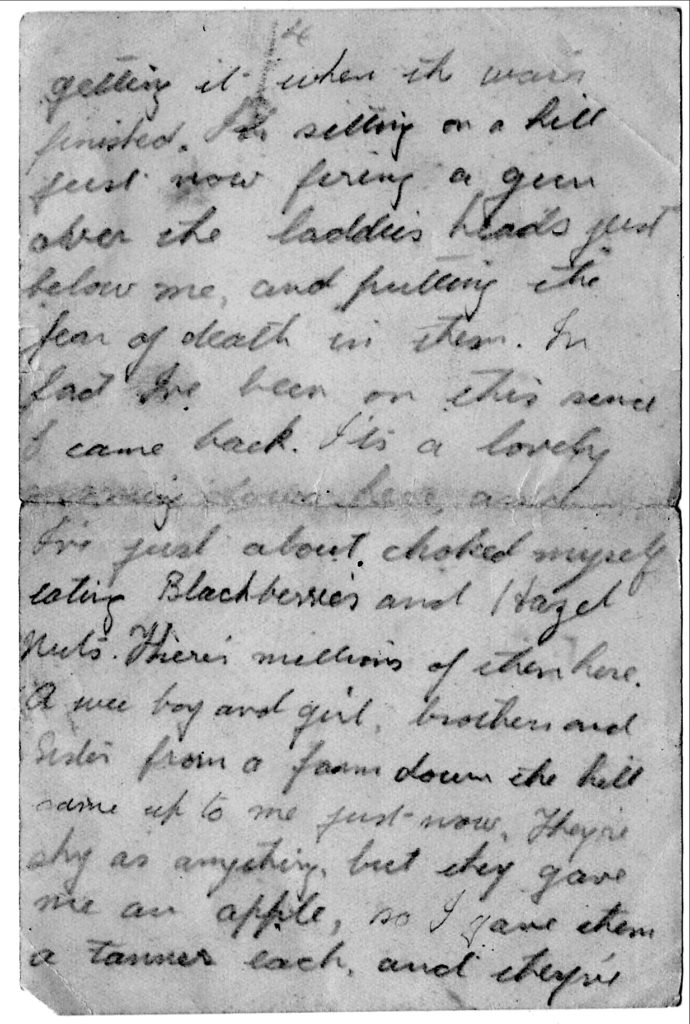 4
getting it when the war's
finished. I'm sitting on a hill
just now firing a gun
over the laddies heads just
below me, and putting the
fear of death in them. In
fact I've been on this since
I came back. It's a lovely
morning down here, and
I've just about choked myself
eating Blackberries and Hazel
Nuts. There's millions of them here.
A wee boy and girl, brother and
Sister from a farm down the hill
came up to me just now. They're
shy as anything, but they gave
me an apple, so I gave them
a tanner each, and they're